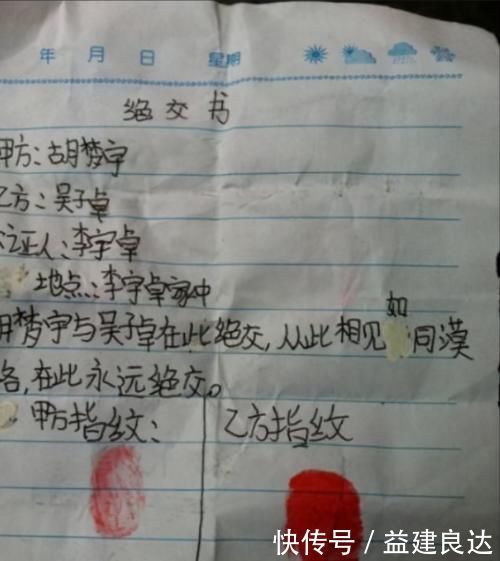 年 月 日 星期
绝交书
甲方:胡梦宇
乙方:吴子卓
证人:李宇卓
地点:李宇卓家中
胡梦宇与吴子卓在此绝交,从此相见如同漠
路,在此永远绝交。
甲方指纹: 乙方指纹
快传号/益建良达